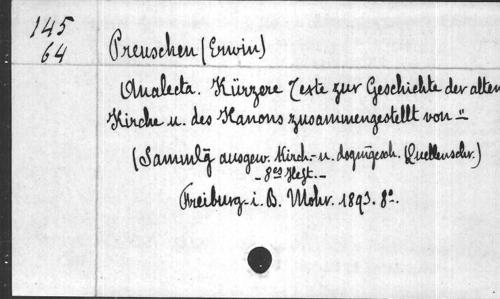 145
64
Preuschen (Erwin)
Analecta. Kürzere Texte zur Geschichte der alten
Kirche u. des Kanons zusammengestellt von –"
(Sammlg ausgew. kirch.- u. dogmgesch. Quellenschr.)
- 8es Heft. -
Freiburg i. B. Mohr. 1893. 8°.